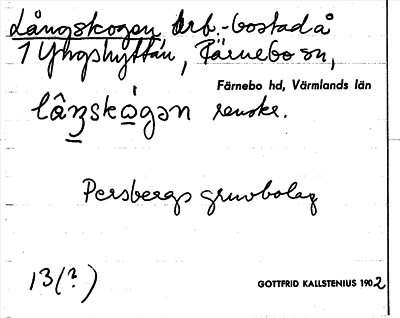 Långskogen Arb.-bostad å
1 Yngshyttan, Färnebo sn,
Färnebo hd, Värmlands län
Persbergs gruvbolag
13(?)
GOTTFRID KALLSTENIUS 1902